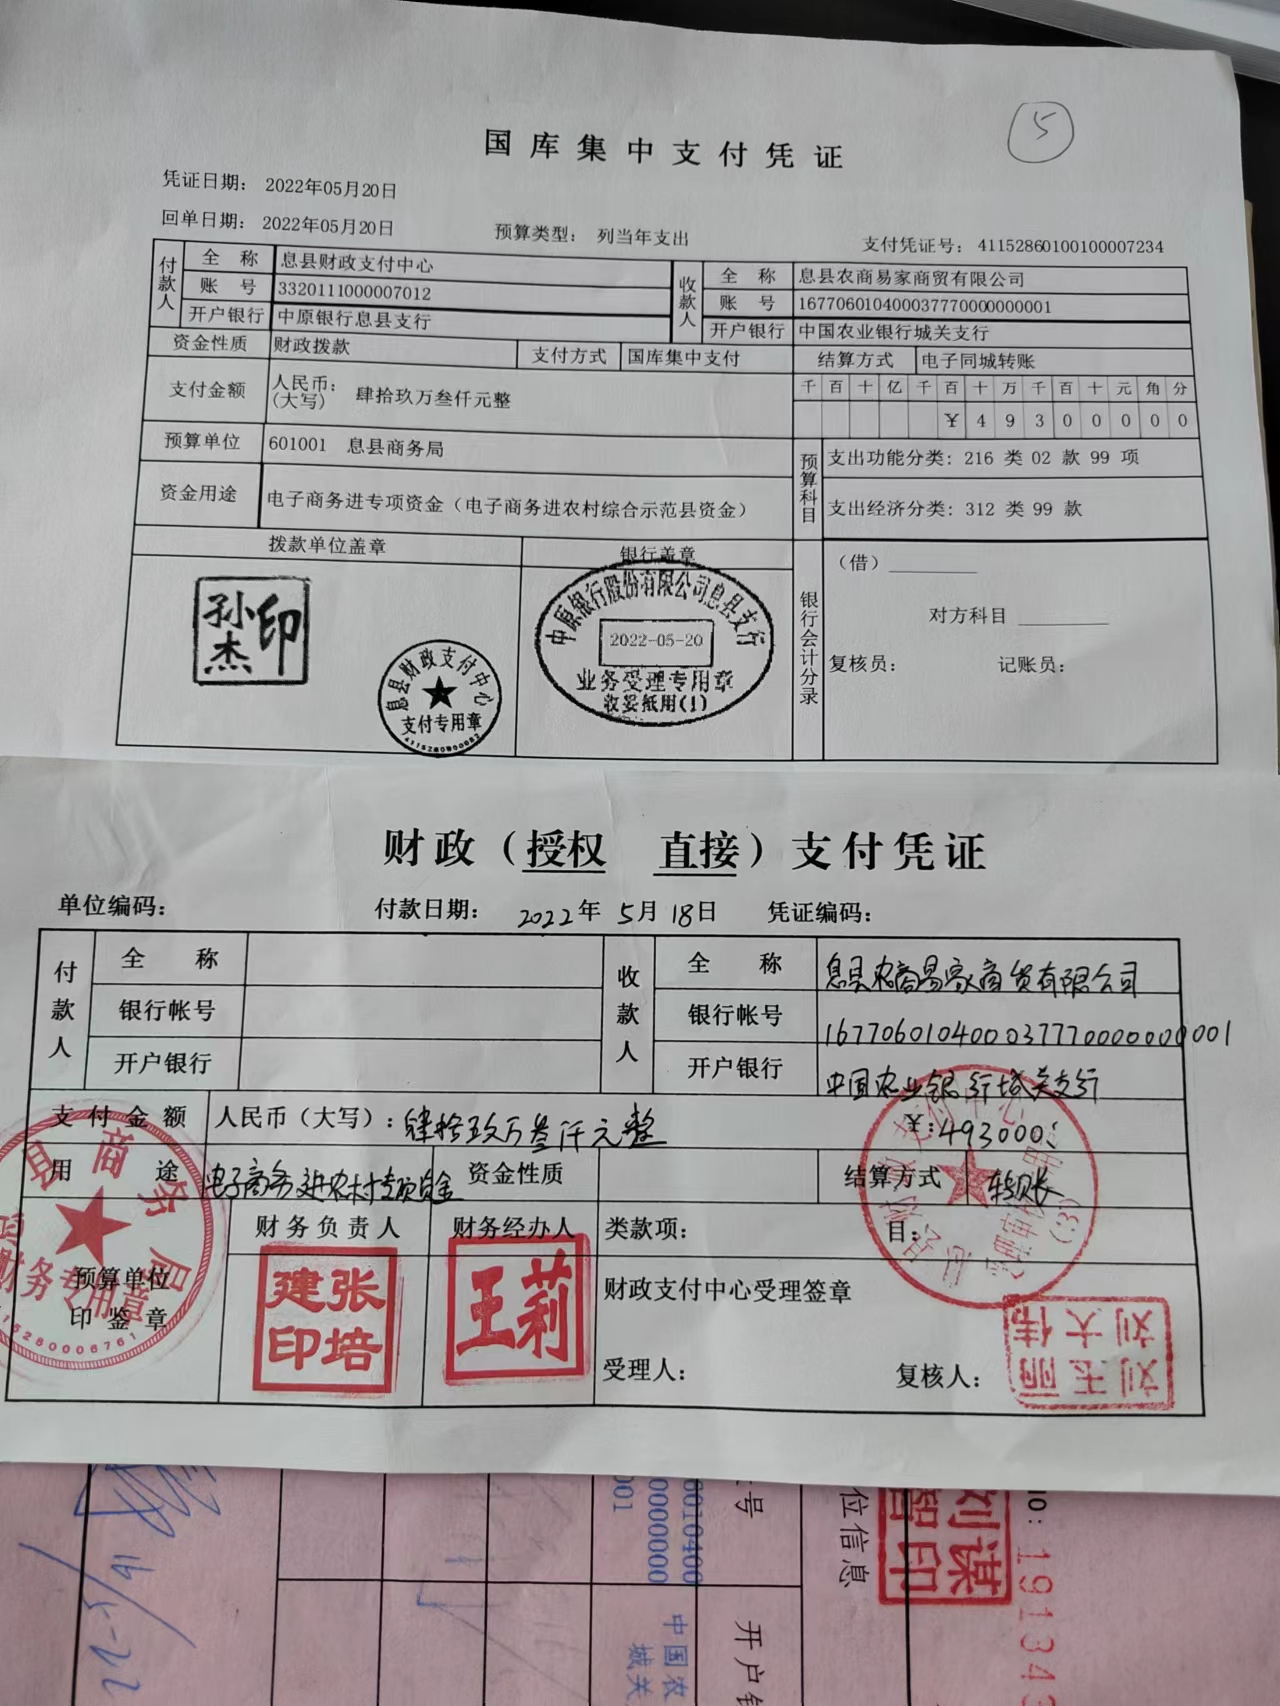 5
国库集中支付凭证
凭证日期： 2022年05月20日
回单日期： 2022年05月20日 预算类型： 列当年支出 支付凭证号： 41152860100100007234
付款人 全称 息县财政支付中心 收款人 全称 息县农商易家商贸有限公司
账号 3320111000007012 账号 16770601040003777000000000​1
开户银行 中原银行息县支行 开户银行 中国农业银行城关支行
资金性质 财政拨款 支付方式 国库集中支付 结算方式 电子同城转账
支付金额 人民币：（大写） 肆拾玖万叁仟元整 千百十亿千百十万千百十元角分
¥49300000
预算单位 601001 息县商务局 预算科目 支出功能分类：216 类 02 款 99 项
资金用途 电子商务进专项资金（电子商务进农村综合示范县资金） 支出经济分类：312 类 99 款
拨款单位盖章 银行盖章 银行会计分录 （借）
对方科目
复核员： 记账员：
孙杰印
息县财政支付中心
支付专用章
中原银行股份有限公司息县支行
2022-05-20
业务受理专用章
收妥抵用(1)
财政（授权 直接）支付凭证
单位编码： 付款日期： 2022年 5月 18日 凭证编码：
付款人 全称 收款人 全称 息县农商易家商贸有限公司
银行帐号 银行帐号 1677060104000377700000000001
开户银行 开户银行 中国农业银行城关支行
支付金额 人民币（大写）：肆拾玖万叁仟元整 ¥：493000：
用途 电子商务进农村专项资金 资金性质 结算方式 转账
财务负责人 财务经办人 类款项： 目：
预算单位印鉴章 财政支付中心受理签章
受理人： 复核人：
县商务局
财务专用章
张培建印
王莉
刘大伟
刘玉丽
位信息
号
开户
中国农
城关
0010400
0000000
001
NO: 191343